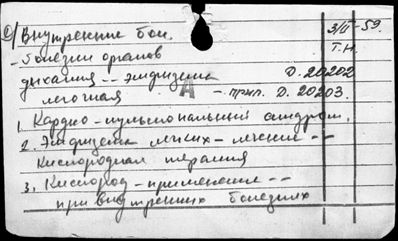 Внутренние бол. 3/II-59.
- болезни органов Т.Н.
дыхания -- эмфизема Д. 20202
легочная А - прил. Д. 20203.
1. Кардио-пульмональный синдром.
2. Эмфизема легких - лечение --
Кислородная терапия
3. Кислород - применение --
при внутренних болезнях